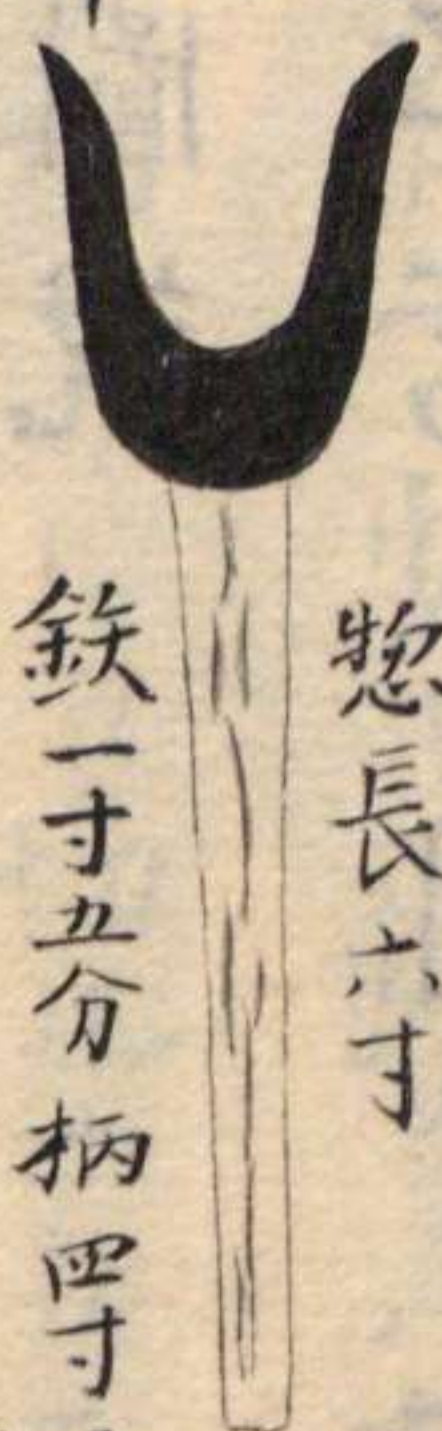 惣長六寸
鉄一寸五分柄四寸